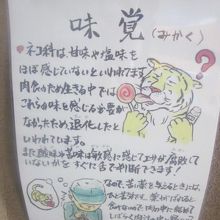 味覚(みかく)
ネコ科は、甘味や塩味を
ほぼ感じていないといわれてます
肉食のため生きる中では
これらの味を感じる必要が
なかったため退化したと
いわれてます。
また酸味や苦味は敏感に感じてエサが腐敗して
いないかをすぐに舌で判断できます!
なので、苦い薬を与えるときには、